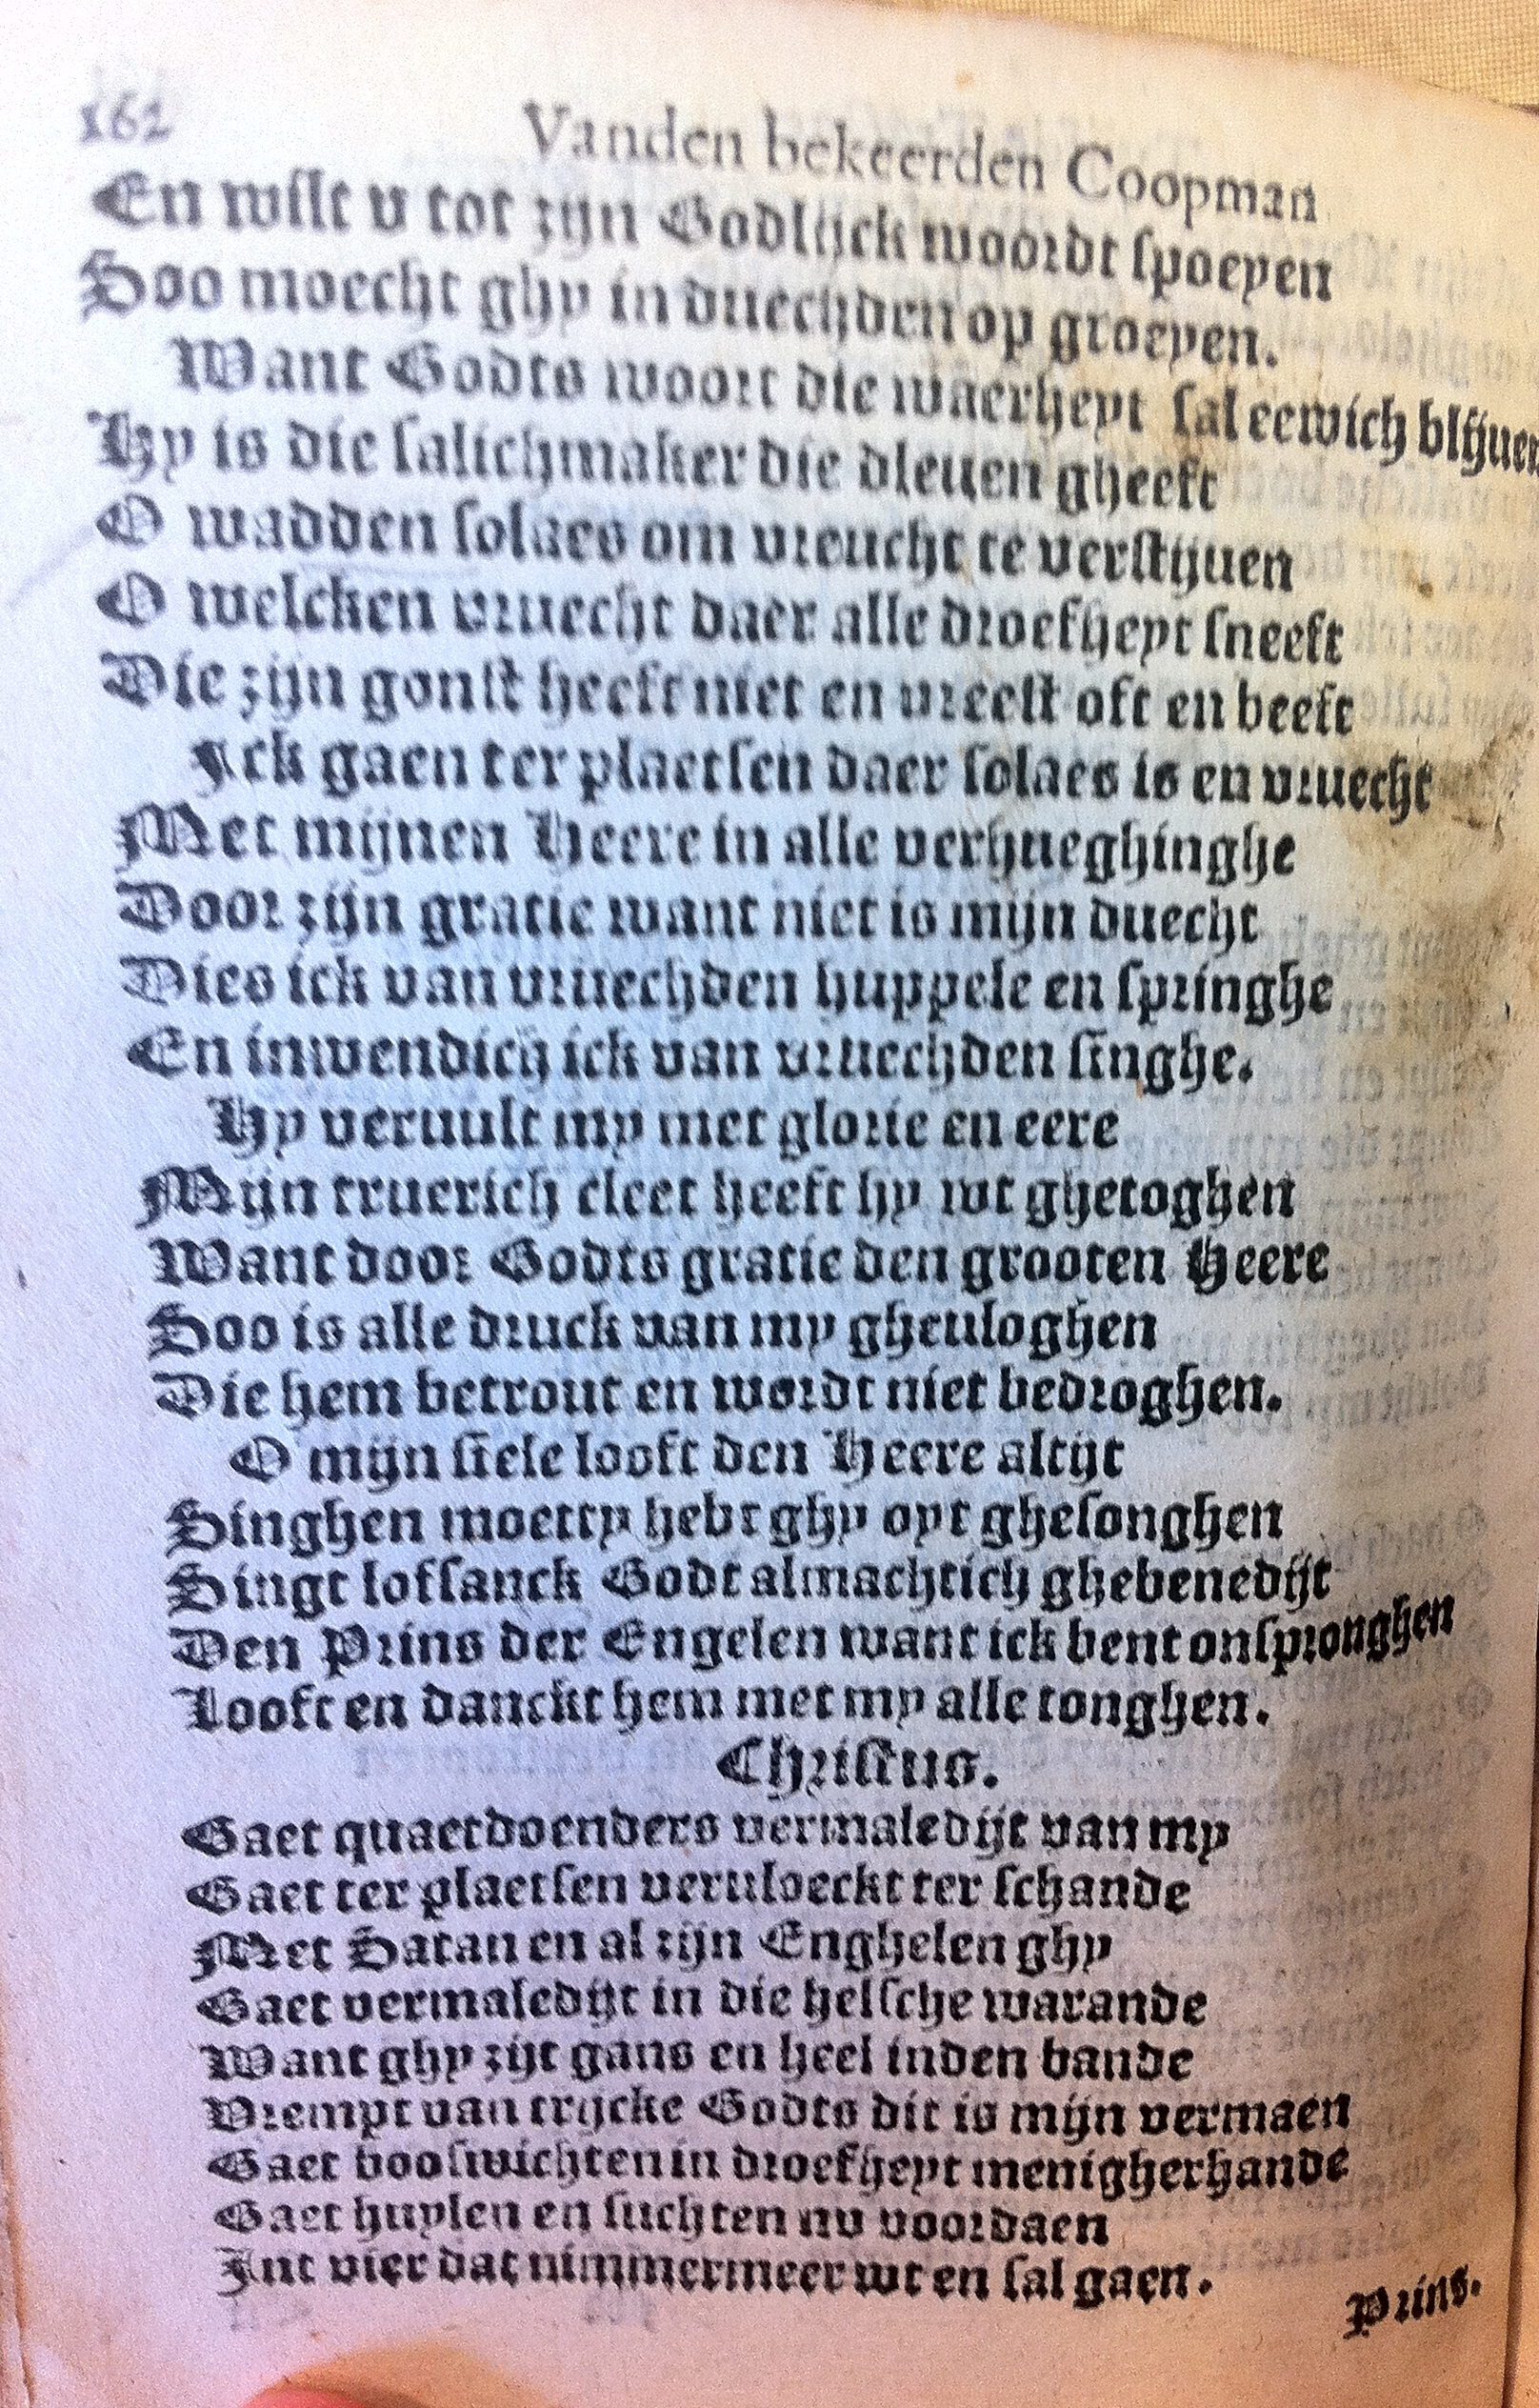 162 Vanden bekeerden Coopman
En wilt v tot zijn Godlijck woordt spoeyen
Soo moecht ghy in duechden op groeyen.
Want Godts woort die waerheyt sal eewich blijuen
Hy is die salichmaker die dleuen gheeft
O wadden solaes om vreucht te verstijuen
O welcken vruecht daer alle droefheyt sneeft
Die zijn gonst heeft niet en vreest oft en beeft
Ick gaen ter plaetsen daer solaes is en vruecht
Met mijnen Heere in alle verhueghinghe
Door zijn gratie want niet is mijn duecht
Dies ick van vruechden huppele en springhe
En inwendich ick van vruechden singhe.
Hy veruult my met glorie en eere
Mijn truerich cleet heeft hy wt ghetoghen
Want door Godts gratie den grooten Heere
Soo is alle druck van my gheuloghen
Die hem betrout en wordt niet bedroghen.
O mijn siele looft den Heere altijt
Singhen moetty hebt ghy oyt ghesonghen
Singt lofsanck Godt almachtich ghebenedijt
Den Prins der Engelen want ick bent onspronghen
Looft en danckt hem met my alle tonghen.
Christus.
Gaet quaetdoenders vermaledijt van my
Gaet ter plaetsen veruloeckt ter schande
Met Satan en al zijn Enghelen ghy
Gaet vermaledijt in die helsche warande
Want ghy zijt gans en heel inden bande
Vrempt van trijcke Godts dit is mijn vermaen
Gaet booswichten in droefheyt menigherhande
Gaet huylen en suchten nv voordaen
Int vier dat nimmermeer wt en sal gaen.
Prins.